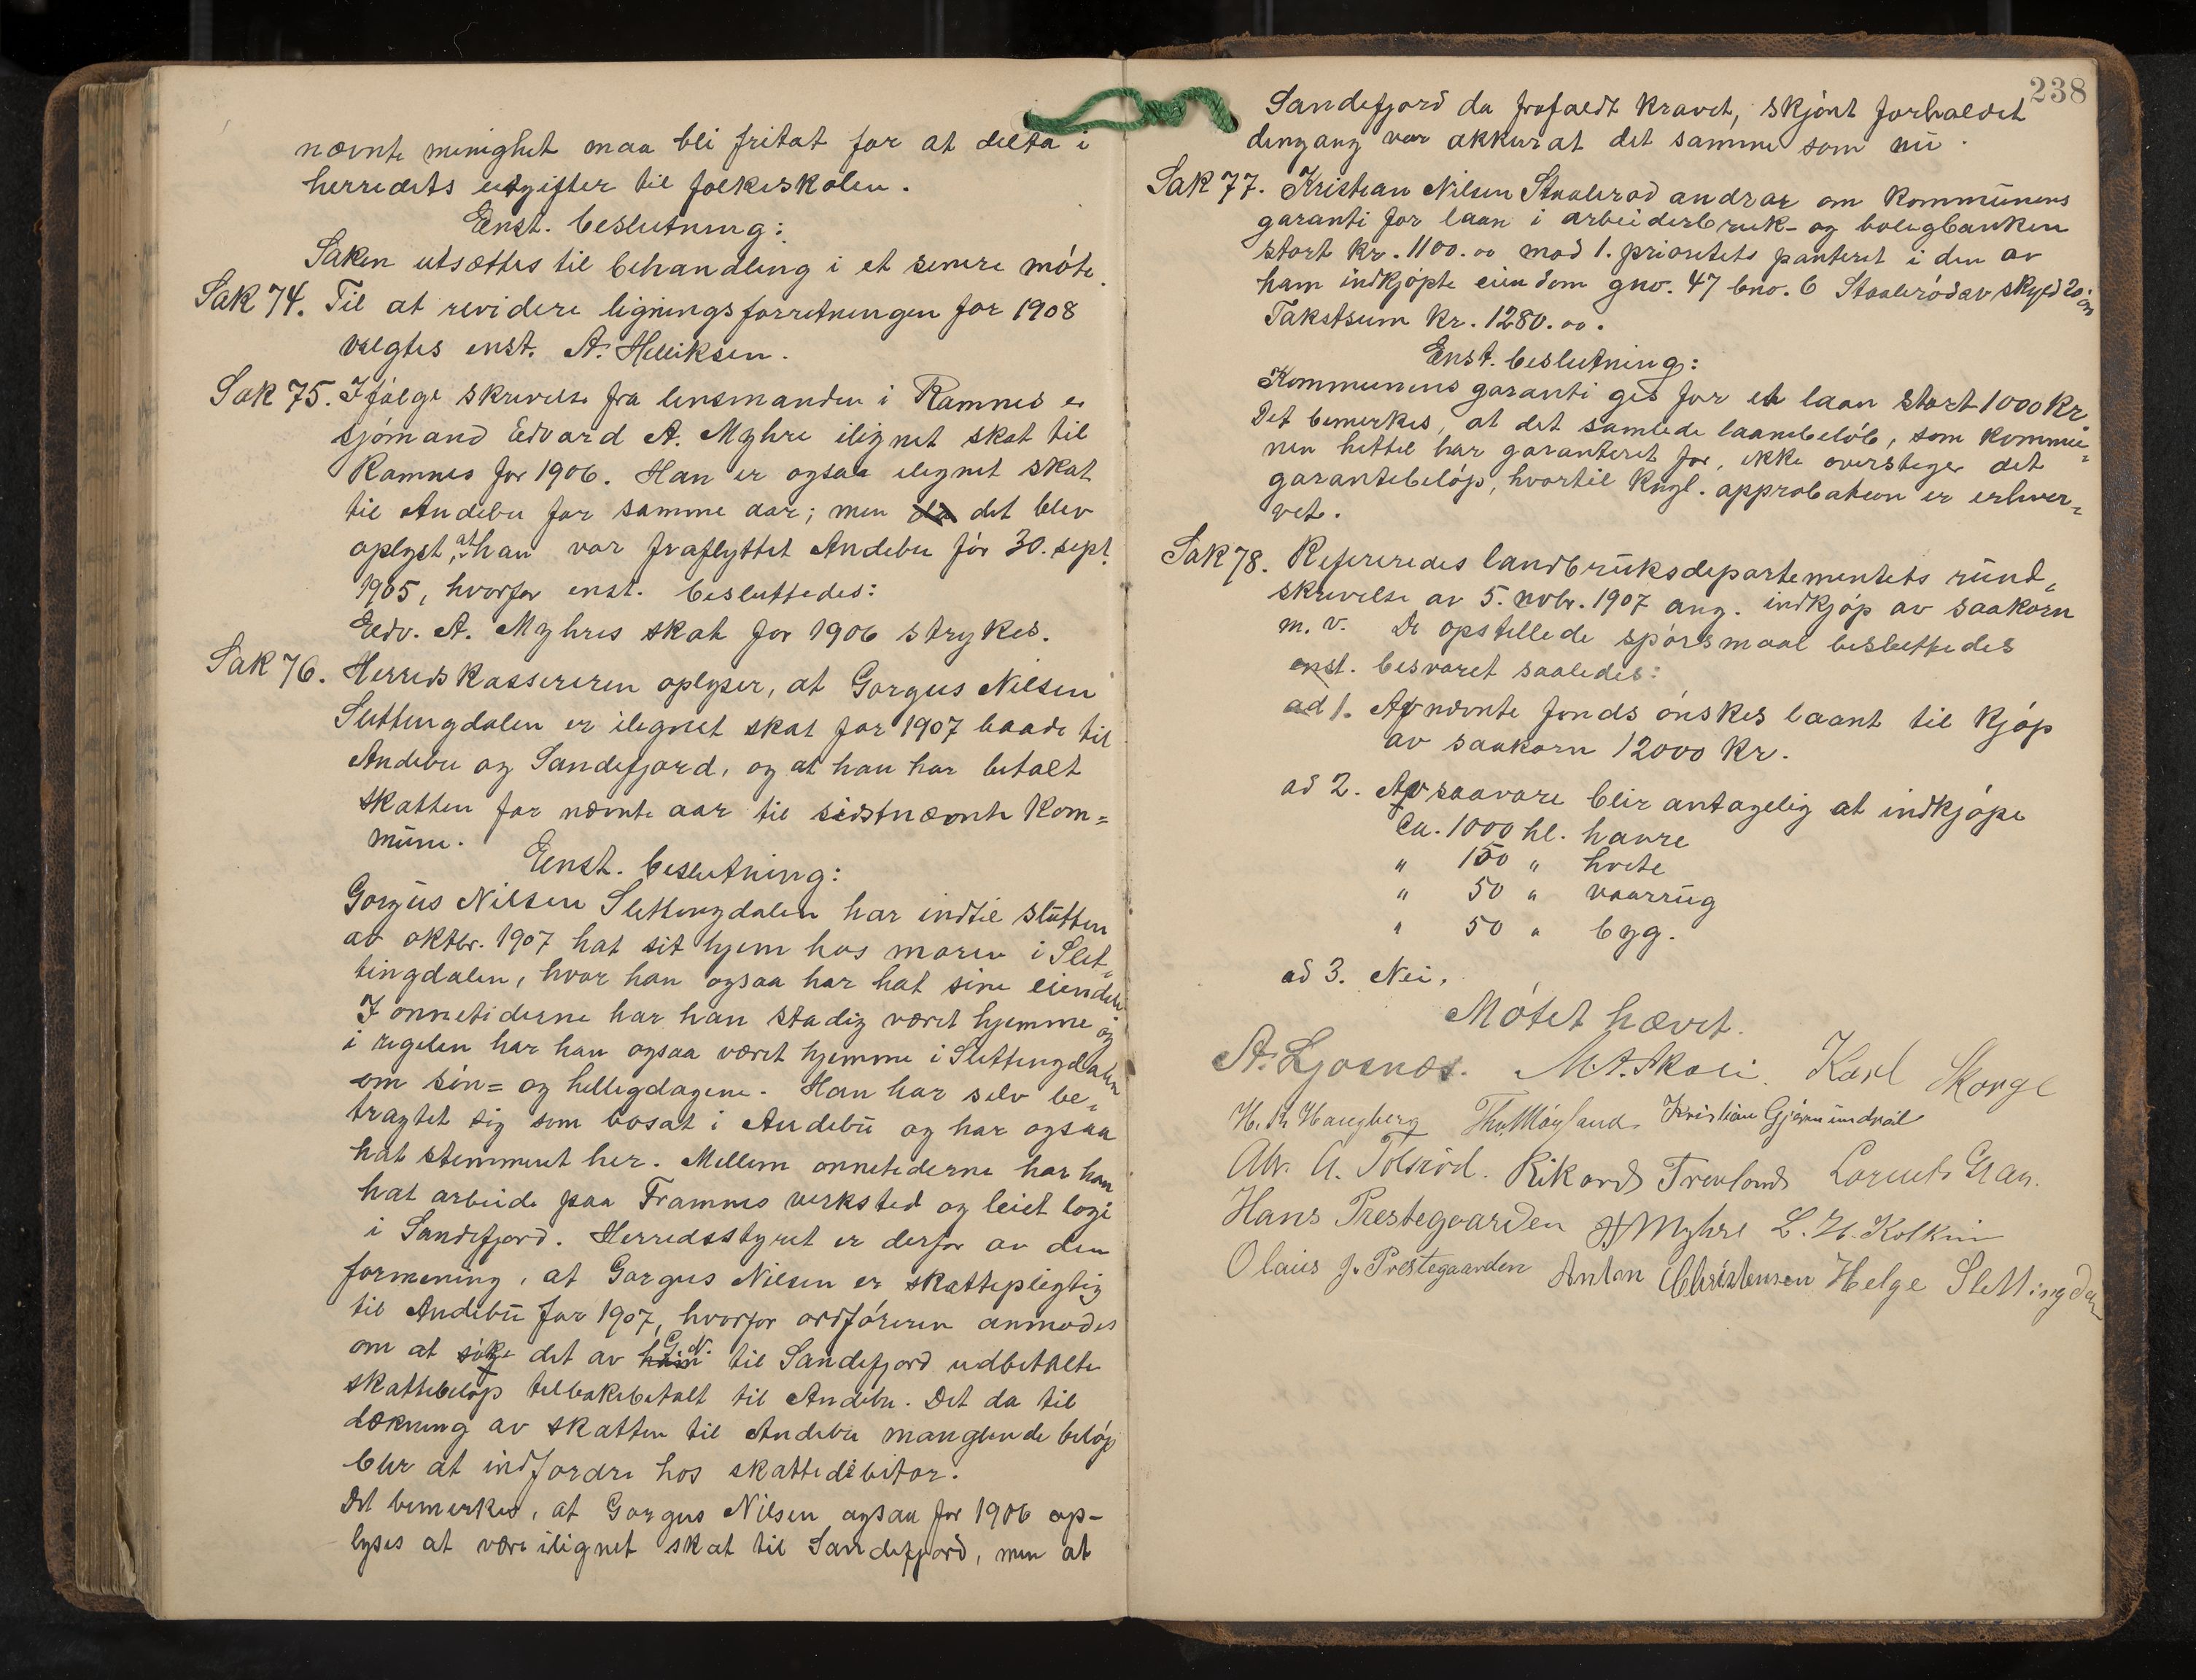 nævnte menighet maa bli fritat for at delta i
herredets utgifter til folkeskolen.
Enst. beslutning:
Saken utsættes til behandling i et senere møte.
Sak 74. Til at revidere ligningsforretningen for 1908
valgtes enst. A. Helliksen.
Sak 75. Ifølge skrivelse fra lensmanden i Ramnes er
sjømand Edvard A. Myhre ilignet skat til
Ramnes for 1906. Han er ogsaa ilignet skat
til Andebu for samme aar; men da det blev
oplyst, at han var fraflyttet Andebu før 30. sept.
1905, hvorfor enst. besluttedes:
Edv. A. Myhres skat for 1906 strykes.
Sak 76. Herredskassereren oplyser, at Gorgus Nilsen
Slettingdalen er ilignet skat for 1907 baade til
Andebu og Sandefjord, og at han har betalt
skatten for nævnte aar til sidstnævnte kom=
mune.
Enst. beslutning:
Gorgus Nilsen Slettingdalen har indtil slutten
av oktbr. 1907 hat sit hjem hos moren i Slet=
tingdalen, hvor han ogsaa har hat sine eiendele
I onnetiderne har han stadig været hjemme og
i regelen har han ogsaa været hjemme i Slettingdalen
om søn= og helligdagene. Han har selv be=
tragtet sig som bosat i Andebu og har ogsaa
hat stemmeret her. Mellem onnetiderne har han
hat arbeide paa Framnes verksted og leiet logi
i Sandefjord. Herredsstyret er derfor av den
formening, at Gorgus Nilsen er skattepligtig
til Andebu for 1907, hvorfor ordføreren anmodes
om at søke det av han G. N. til Sandefjord udbetalte
skattebeløp tilbakebetalt til Andebu. Det da til
dækning av skatten til Andebu manglende beløp
blir at indfordre hos skattedebitor.
Det bemerkes, at Gorgus Nilsen ogsaa for 1906 op-
lyses at være ilignet skat til Sandefjord, men at
238
Sandefjord da frafaldt kravet, skjønt forholdet
dengang var akkurat det samme som nu.
Sak 77. Kristian Nilsen Staalerød andrar om kommunens
garanti for laan i arbeiderbruk- og boligbanken
stort kr. 1100.00 mod 1. prioritets panteret i den av
ham indkjøpte eiendom gno. 47 bno. 6 Staalerød av skyld 20 øre
Takstsum kr. 1280.00.
Enst. beslutning:
Kommunens garanti ges for et laan stort 1000 kr.
Det bemerkes, at det samlede laanebeløb, som kommu=
nen hettil har garanteret for, ikke overstiger det
garantibeløp, hvortil kngl. approbation er erhver=
vet.
Sak 78. Refereredes landbruksdepartementets rund=
skrivelse av 5. novbr. 1907 ang. indkjøp av saakorn
m. v. De opstillede spørsmaal besluttedes
enst. besvaret saaledes:
ad 1. Av nævnte fonds ønskes laant til kjøp
av saakorn 12000 kr.
ad 2. Av saavare blir antagelig at indkjøpe
Ca. 1000 hl. havre
" 150 " hvete
" 50 " vaarrug
" 50 " byg.
ad 3. Nei.
Møtet hævet.
A. Ljosnæs. M. A. Skoli. Karl Skorge
H. K. Haugberg Th. Møyland. Kristian Gjermundrød
Alv. A. Tolsrød. Rikard Trevland Lorents Gran.
Hans Prestegaarden H Myhre L. H. Kolkin
Olaus J. Prestegaarden Anton Christensen Helge Slettingdal